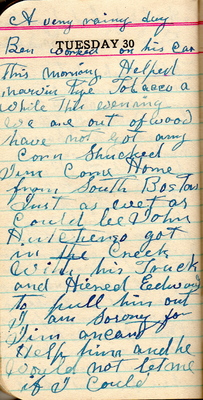 A very rainy day
Ben worked on his car
TUESDAY 30
this morning Helped
marvin tye Tobacco a
while this evening
We are out of wood
have not got any
Corn Shucked
Jim Come Home
from South Boston
Just as wet as
Could be John
got
in the Creek
With his Truck
and Hiered Edward
to pull him out
I am Sorry for
Jim ancant
Help him and he
Would not let me
if I Could